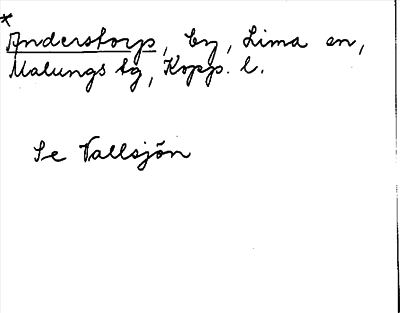 *
Anderstorp, by, Lima sn,
Malungs tg, Kopp. l.
Se Vallsjön